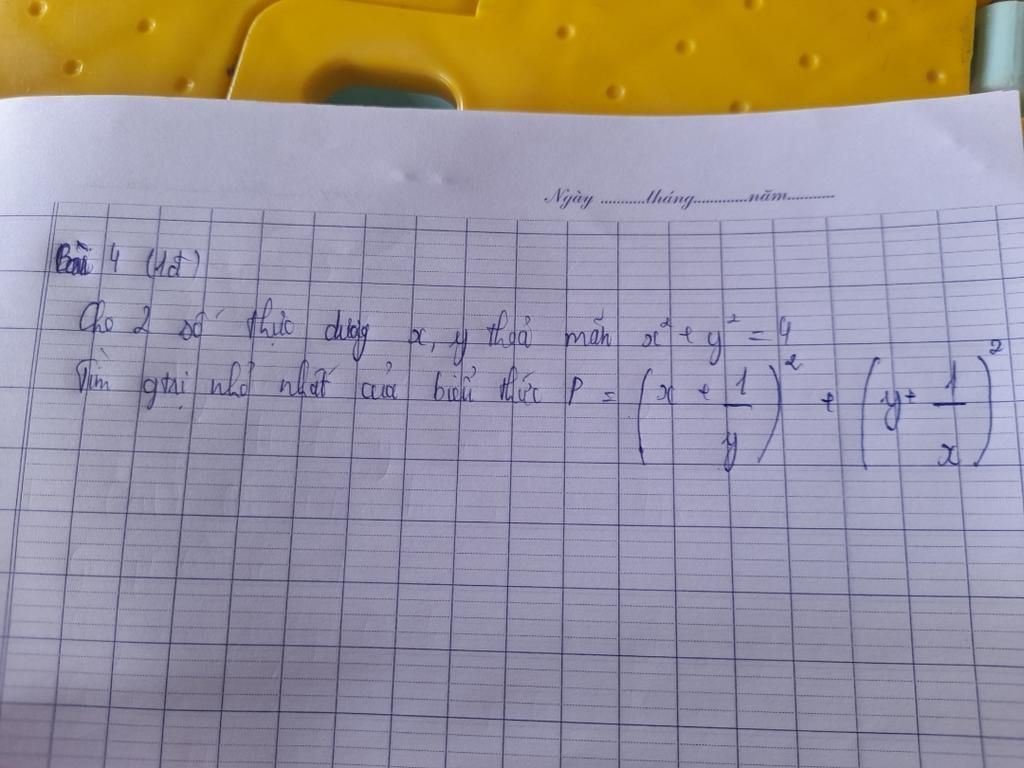 Ngày ..........tháng............năm..........
Bài 4 (1đ)
Cho 2 số thực dương x, y thoả mãn x² + y² = 4
Tìm gtrị nhỏ nhất của biểu thức P = (x + 1/y)² + (y + 1/x)²